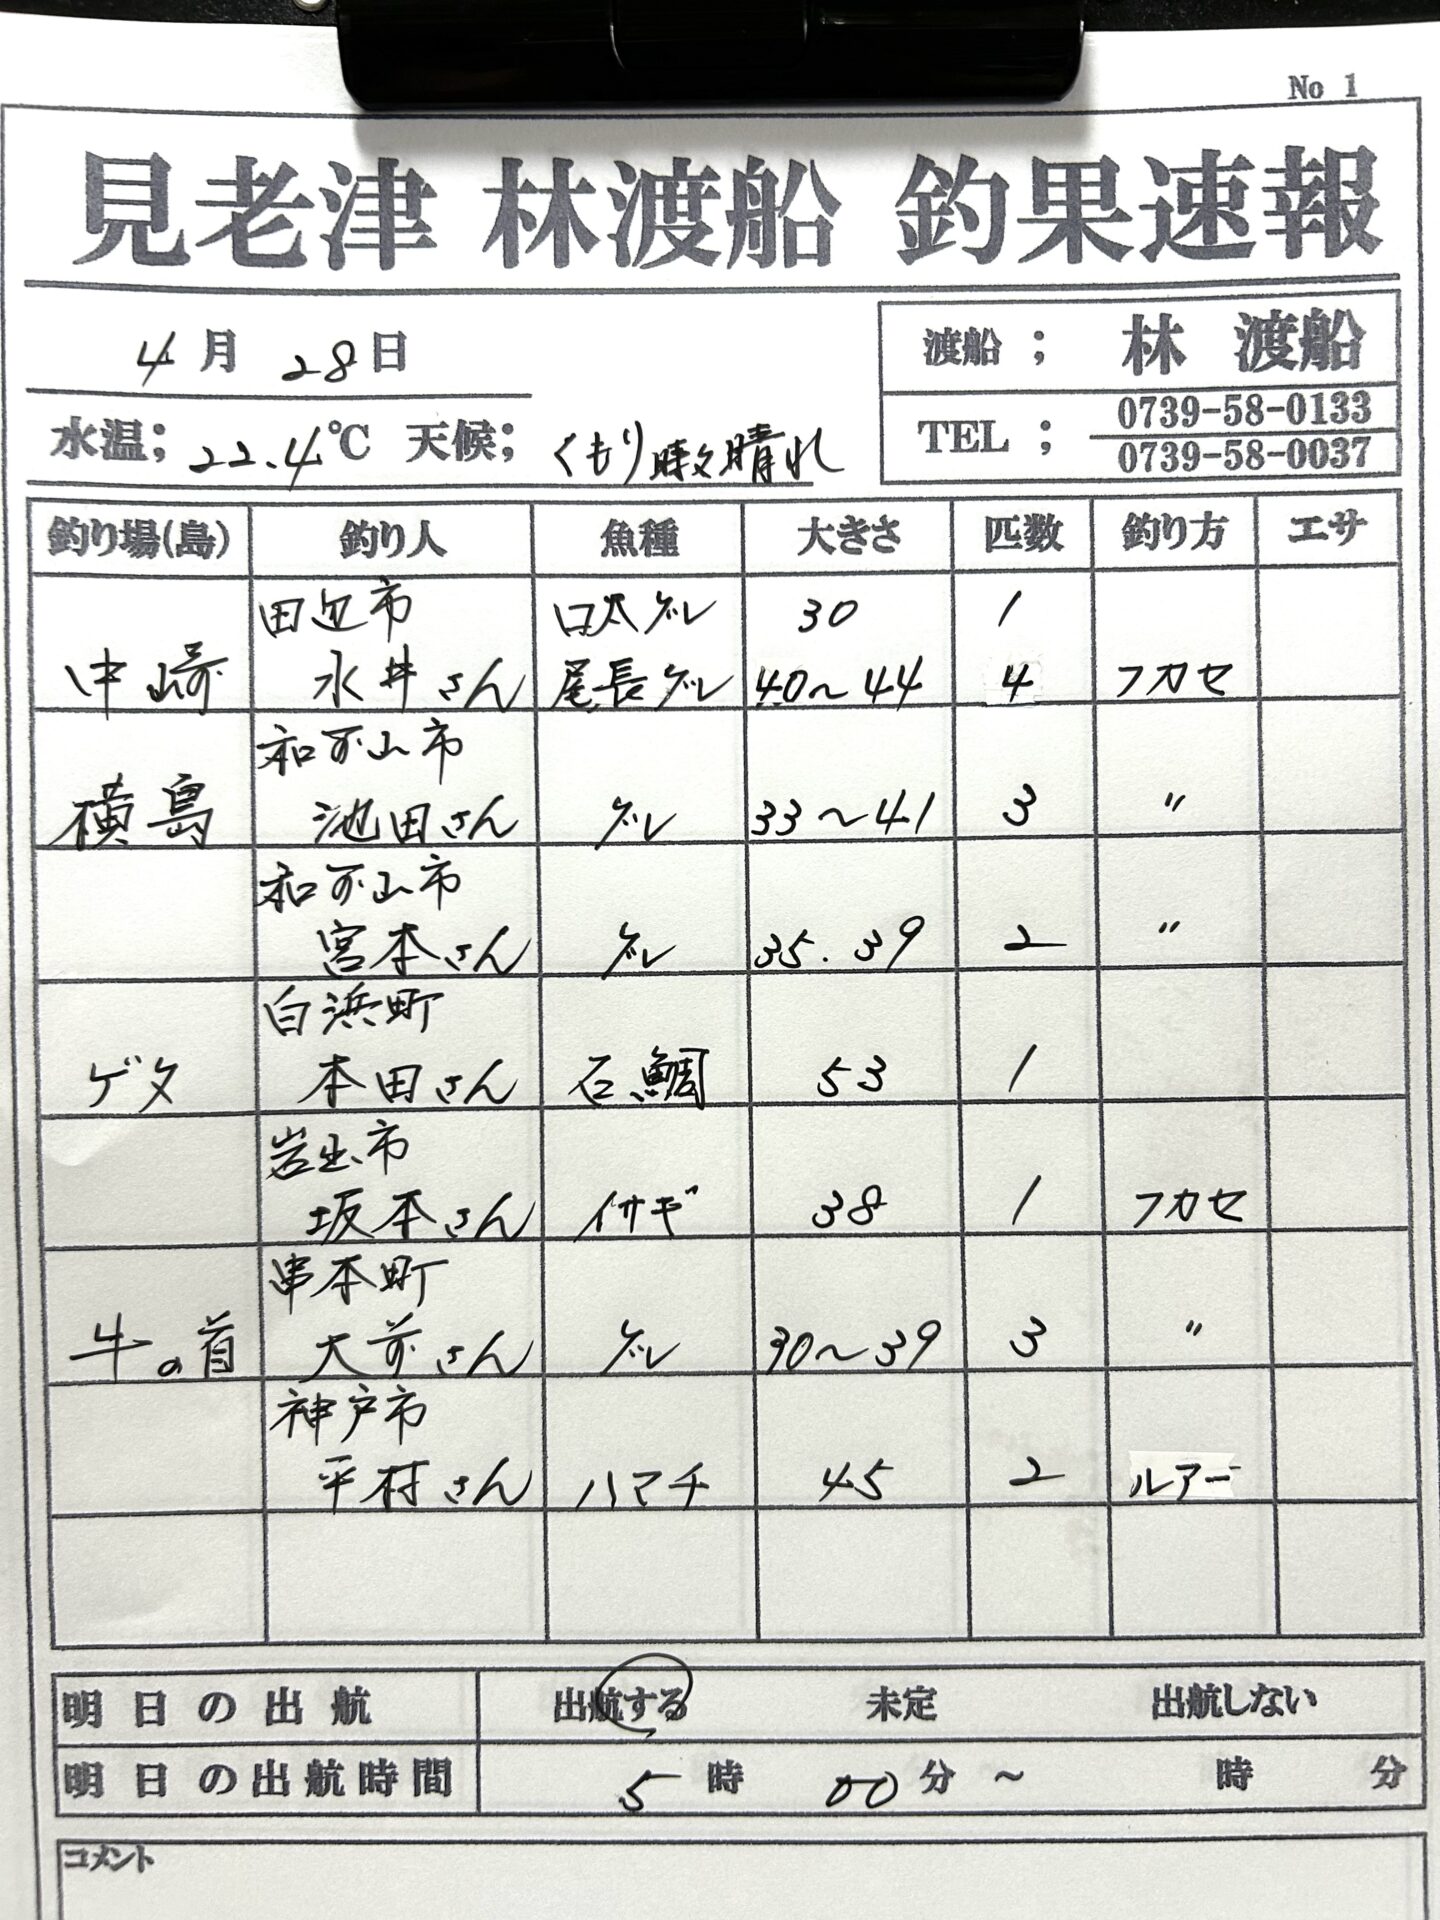 No 1
見老津 林渡船 釣果速報
4月 28日
渡船 ; 林 渡船
水温; 22.4℃ 天候; くもり時々晴れ
TEL ; 0739-58-0133
0739-58-0037
釣り場(島) 釣り人 魚種 大きさ 匹数 釣り方 エサ
田辺市 口太グレ 30 1
中崎 永井さん 尾長グレ 40〜44 4 フカセ
和歌山市
横島 池田さん グレ 33〜41 3 〃
和歌山市
宮本さん グレ 35.39 2 〃
白浜町
ゲタ 本田さん 石鯛 53 1
岩出市
坂本さん イサギ 38 1 フカセ
串本町
牛の首 大前さん グレ 30〜39 3 〃
神戸市
平村さん ハマチ 45 2 ルアー
明日の出航 出航する 未定 出航しない
明日の出航時間 5時 00分 〜 時 分
コメント